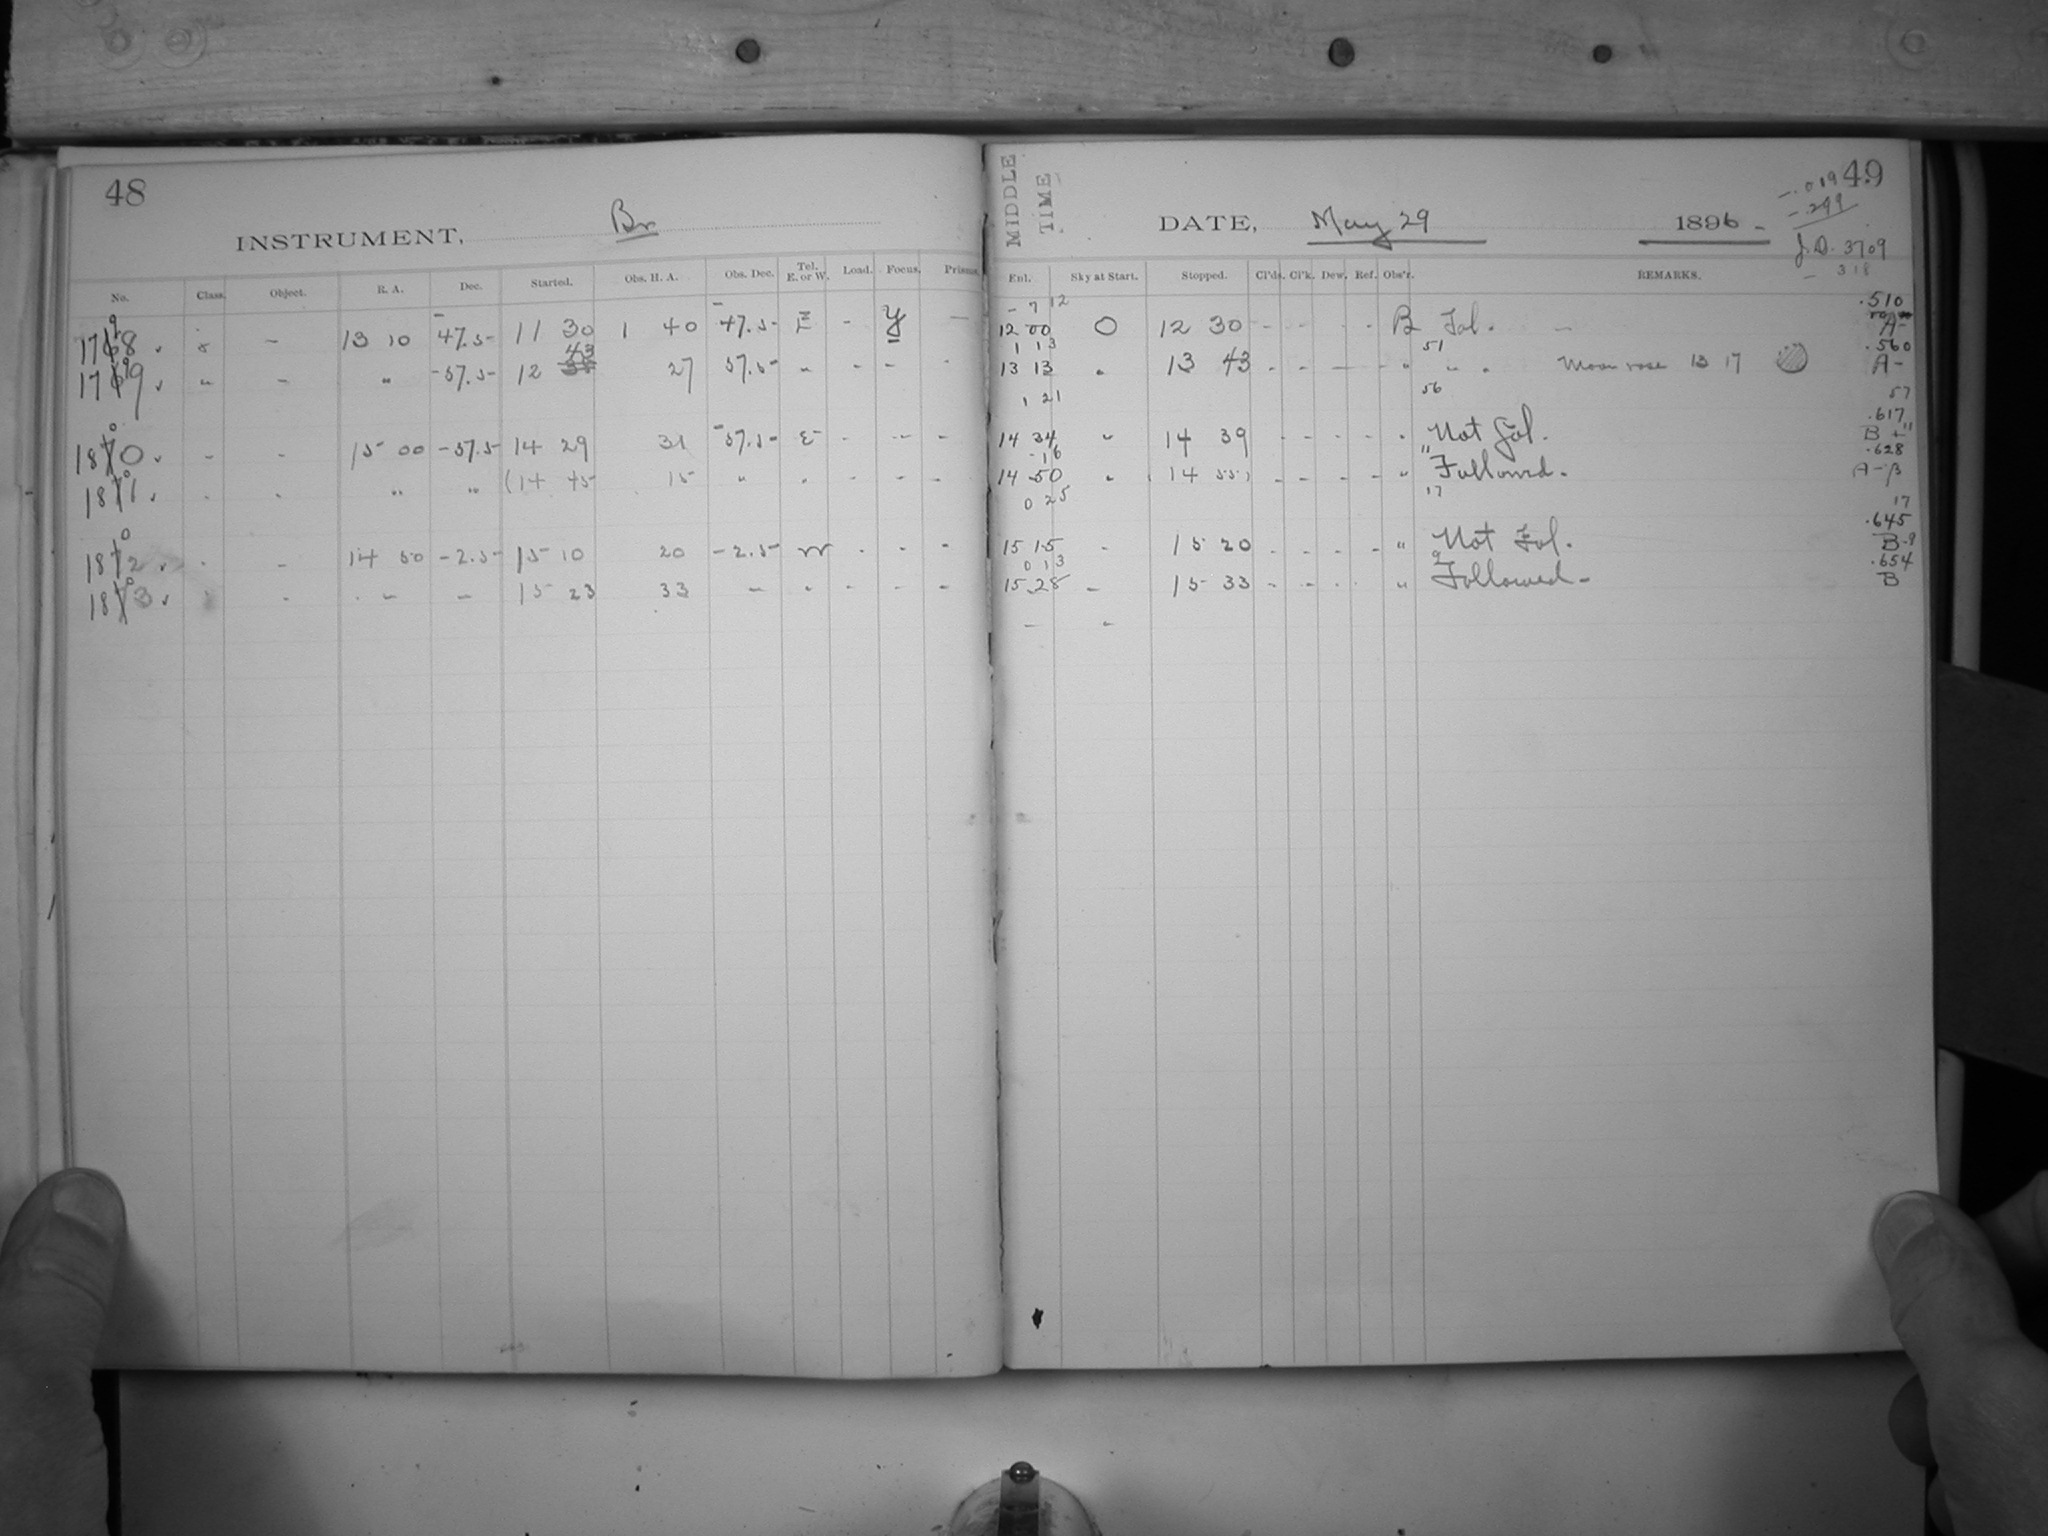 48
INSTRUMENT, Br
No. Class. Object. R. A. Dec. Started. Obs. H. A. Obs. Dec. Tel. E. or W. Load. Focus. Prisms.
13 10 -47.5 11 30 1 40 -47.5 E - y -
" -57.5 12 43 27 57.5 " - - -
15 00 -57.5 14 29 31 -57.5 E - " -
" " (14 45 15 " - - - -
14 50 -2.5 15 10 20 -2.5 W - - -
- - - 15 23 33 - - - - -
MIDDLE TIME
DATE, May 29 1896 -
49
-.019
-.299
J.D. 3709
- 318
Enl. Sky at Start. Stopped. Cl'ds. Cl'k. Dew. Ref. Obs'r. REMARKS.
- 7 12 .510
12 00 O 12 30 - - - - B Fol. - A-
1 13 51 .560
13 13 " 13 43 - - - - " " " Moon rose 13 17 A-
1 21 56 57
.617
14 34 " 14 39 - - - - " Not Fol. B + 11
- 16 11 .628
14 50 " 14 55) - - - - " Followed.
0 25 17 17
.645
15 15 - 15 20 - - - - " Not Fol. B - 9
0 13 9 .654
15 28 - 15 33 - - - - " Followed - B
- "